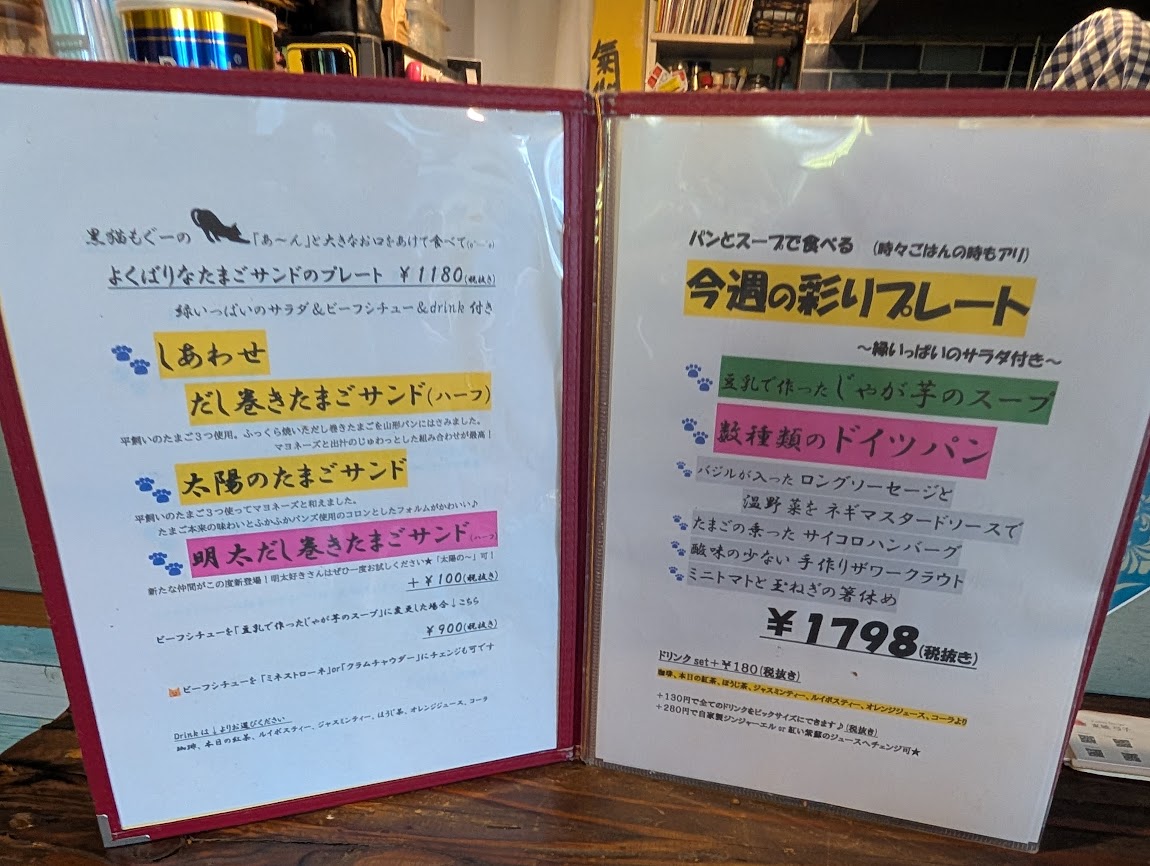 氣
黒猫もぐーの 「あ～ん」と大きなお口をあけて食べて
よくばりなたまごサンドのプレート ￥1180(税抜き)
緑いっぱいのサラダ＆ビーフシチュー＆drink 付き
しあわせ
だし巻きたまごサンド(ハーフ)
平飼いのたまご3つ使用。ふっくら焼いただし巻きたまごを山形パンにはさみました。
マヨネーズと出汁のじゅわっとした組み合わせが最高！
太陽のたまごサンド
平飼いのたまご3つ使ってマヨネーズと和えました。
たまご本来の味わいとふかふかバンズ使用のコロンとしたフォルムがかわいい♪
明太だし巻きたまごサンド(ハーフ)
新たな仲間がこの度新登場！明太好きさんはぜひ一度お試しください★「太陽の～」可！
＋￥100(税抜き)
ビーフシチューを「豆乳で作ったじゃが芋のスープ」に変更した場合↓こちら
￥900(税抜き)
ビーフシチューを「ミネストローネ」or「クラムチャウダー」にチェンジも可です
Drinkは↓よりお選びください
珈琲、本日の紅茶、ルイボスティー、ジャスミンティー、ほうじ茶、オレンジジュース、コーラ
パンとスープで食べる (時々ごはんの時もアリ)
今週の彩りプレート
～緑いっぱいのサラダ付き～
豆乳で作ったじゃが芋のスープ
数種類のドイツパン
バジルが入った ロングソーセージと
温野菜を ネギマスタードソースで
たまごの乗った サイコロハンバーグ
酸味の少ない 手作りザワークラウト
ミニトマトと玉ねぎの箸休め
￥1798(税抜き)
ドリンク set＋￥180(税抜き)
珈琲、本日の紅茶、ほうじ茶、ジャスミンティー、ルイボスティー、オレンジジュース、コーラより
＋130円で全てのドリンクをビックサイズにできます♪(税抜き)
＋280円で自家製ジンジャーエール or 紅い紫蘇のジュースへチェンジ可★